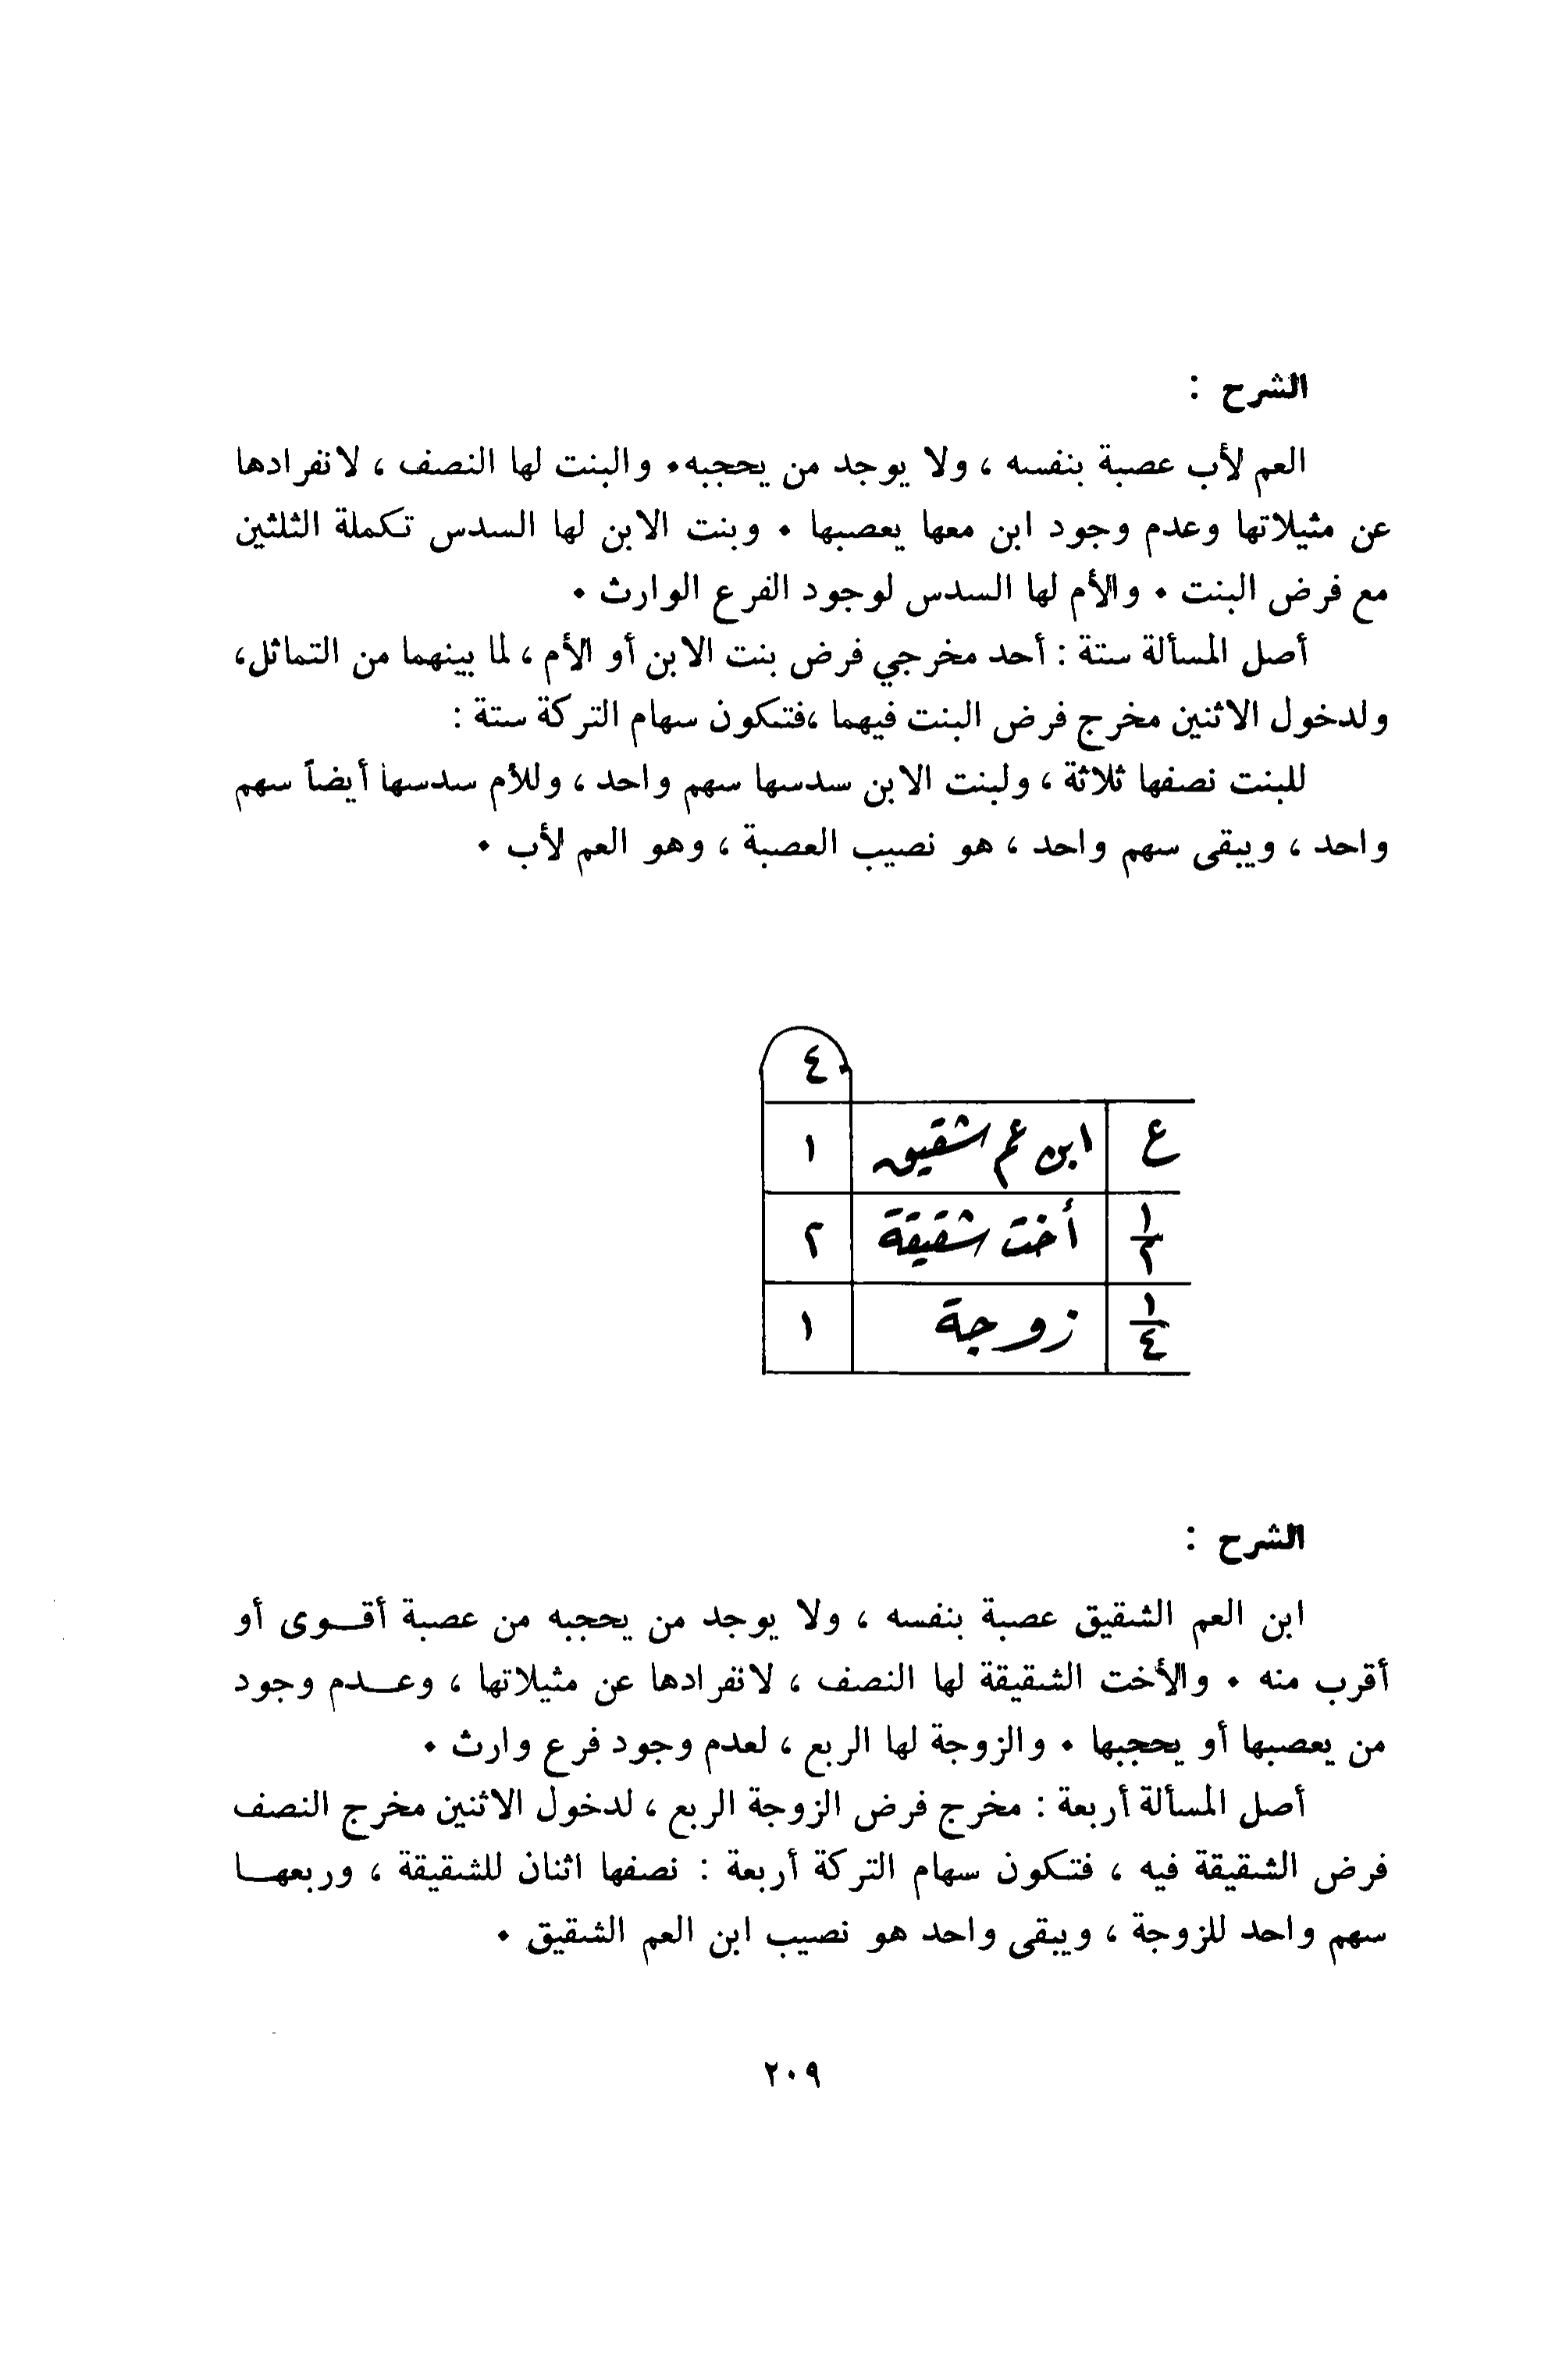 الشرح :
العم لأب عصبة بنفسه ، ولا يوجد من يحجبه٠ والبنت لها النصف ، لانفرادها
عن مثيلاتها وعدم وجود ابن معها يعصبها ٠ وبنت الابن لها السدس تكملة الثلثين
مع فرض البنت ٠ والأم لها السدس لوجود الفرع الوارث ٠
أصل المسألة ستة : أحد مخرجي فرض بنت الابن أو الأم ، لما بينهما من التماثل،
ولدخول الاثنين مخرج فرض البنت فيهما ،فتكون سهام التركة ستة :
للبنت نصفها ثلاثة ، ولبنت الابن سدسها سهم واحد ، وللأم سدسها أيضاً سهم
واحد ، ويبقى سهم واحد ، هو نصيب العصبة ، وهو العم لأب ٠
٤
ع ابن عم شقيق ١
١/٢ أخت شقيقة ٢
١/٤ زوجة ١
الشرح :
ابن العم الشقيق عصبة بنفسه ، ولا يوجد من يحجبه من عصبة أقــوى أو
أقرب منه ٠ والأخت الشقيقة لها النصف ، لانفرادها عن مثيلاتها ، وعــدم وجود
من يعصبها أو يحجبها ٠ والزوجة لها الربع ، لعدم وجود فرع وارث ٠
أصل المسألة أربعة : مخرج فرض الزوجة الربع ، لدخول الاثنين مخرج النصف
فرض الشقيقة فيه ، فتكون سهام التركة أربعة : نصفها اثنان للشقيقة ، وربعهــا
سهم واحد للزوجة ، ويبقى واحد هو نصيب ابن العم الشقيق ٠
٢٠٩